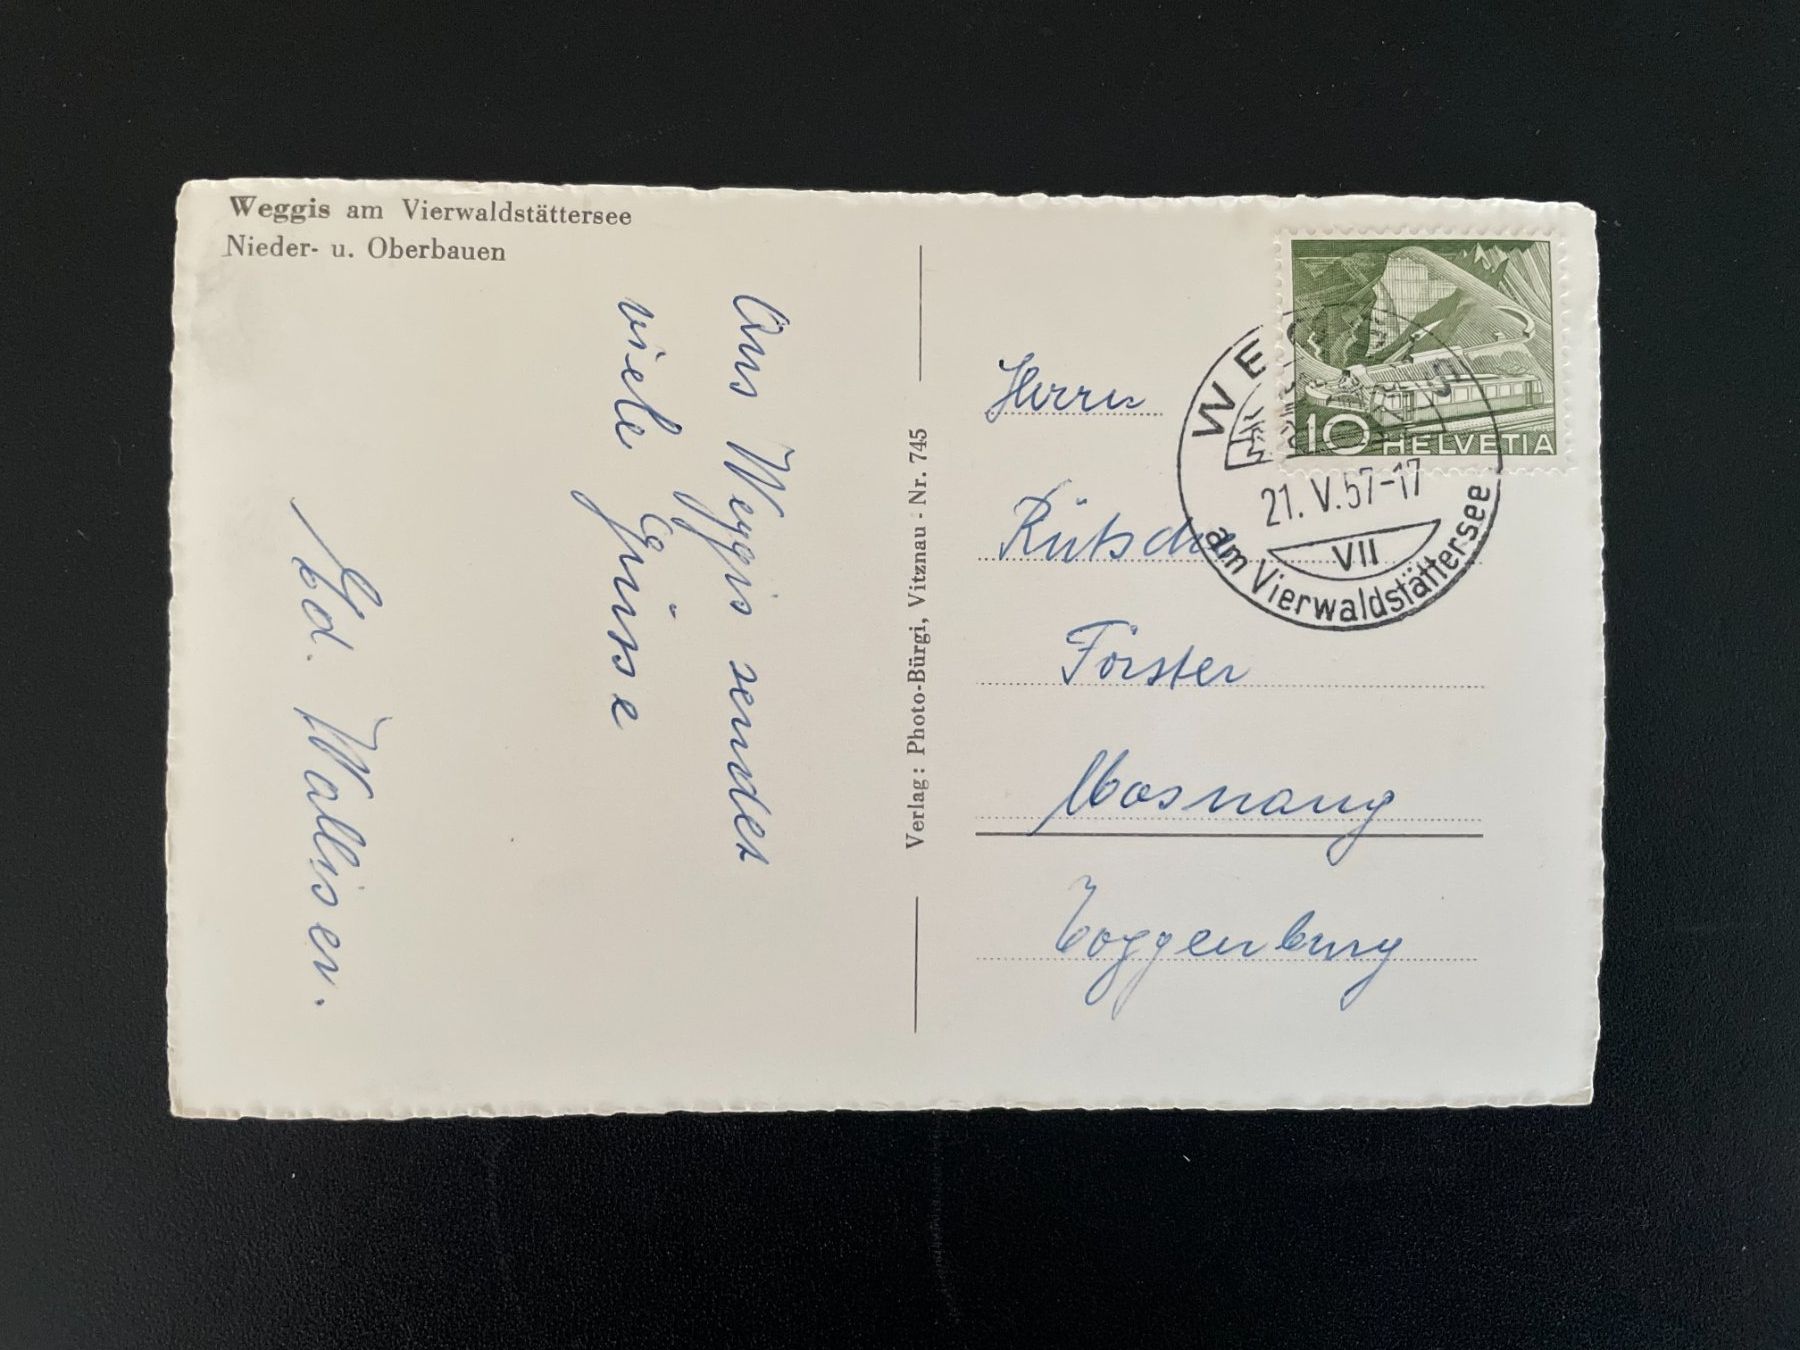 Weggis am Vierwaldstättersee
Nieder- u. Oberbauen
Aus Weggis sendet
viele Grüsse
Ed. Walliser.
Verlag: Photo-Bürgi, Vitznau - Nr. 745
10 HELVETIA
WEGGIS
21. V. 57-17
VII
am Vierwaldstättersee
Herrn
Rütsche
Förster
Mosnang
Toggenburg